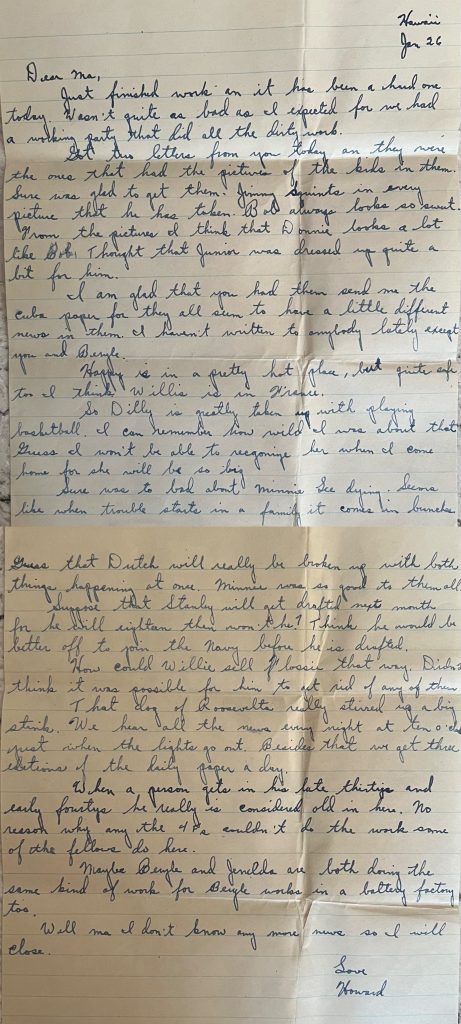 Hawaii
Jan 26
Dear Ma,
Just finished work an it has been a hard one
today. Wasn't quite as bad as I expected for we had
a working party that did all the dirty work.
Got two letters from you today an they were
the ones that had the pictures of the kids in them.
Sure was glad to get them. Jimmy squints in every
picture that he has taken. Bob always looks so sweet.
From the pictures I think that Donnie looks a lot
like Bob. Thought that Junior was dressed up quite a
bit for him.
I am glad that you had them send me the
Cuba paper for they all seem to have a little different
news in them. I haven't written to anybody lately except
you and Beryle.
Happy is in a pretty hot place, but quite safe
too I think. Willis is in France.
So Dilly is greatly taken up with playing
basketball. I can remember how wild I was about that
Guess I won't be able to recgonize her when I come
home for she will be so big
Sure was to bad about Minnie Gee dying. Seems
like when trouble starts in a family it comes in bunches
Guess that Dutch will really be broken up with both
things happening at once. Minnie was so good to them all
Suppose that Stanley will get draftd next month
for he will eighteen then won't he? Think he would be
better off to join the Navy before he is drafted.
How could Willie sell Flossie that way. Didn't
think it was possible for him to get rid of any of them
That dog of Roosevelts really stired up a big
stink. We hear all the news every night at ten o'clock
just when the lights go out. Besides that we get three
editions of the daily paper a day.
When a person gets in his late thirtys and
early fourtys he really is considered old in here. No
reason why any the 4Fs couldn't do the work some
of the fellows do here.
Maybe Beryle and Jenelda are both doing the
same kind of work for Beryle works in a battery factory
too.
Well ma I don't know any more news so I will
close.
Love
Howard